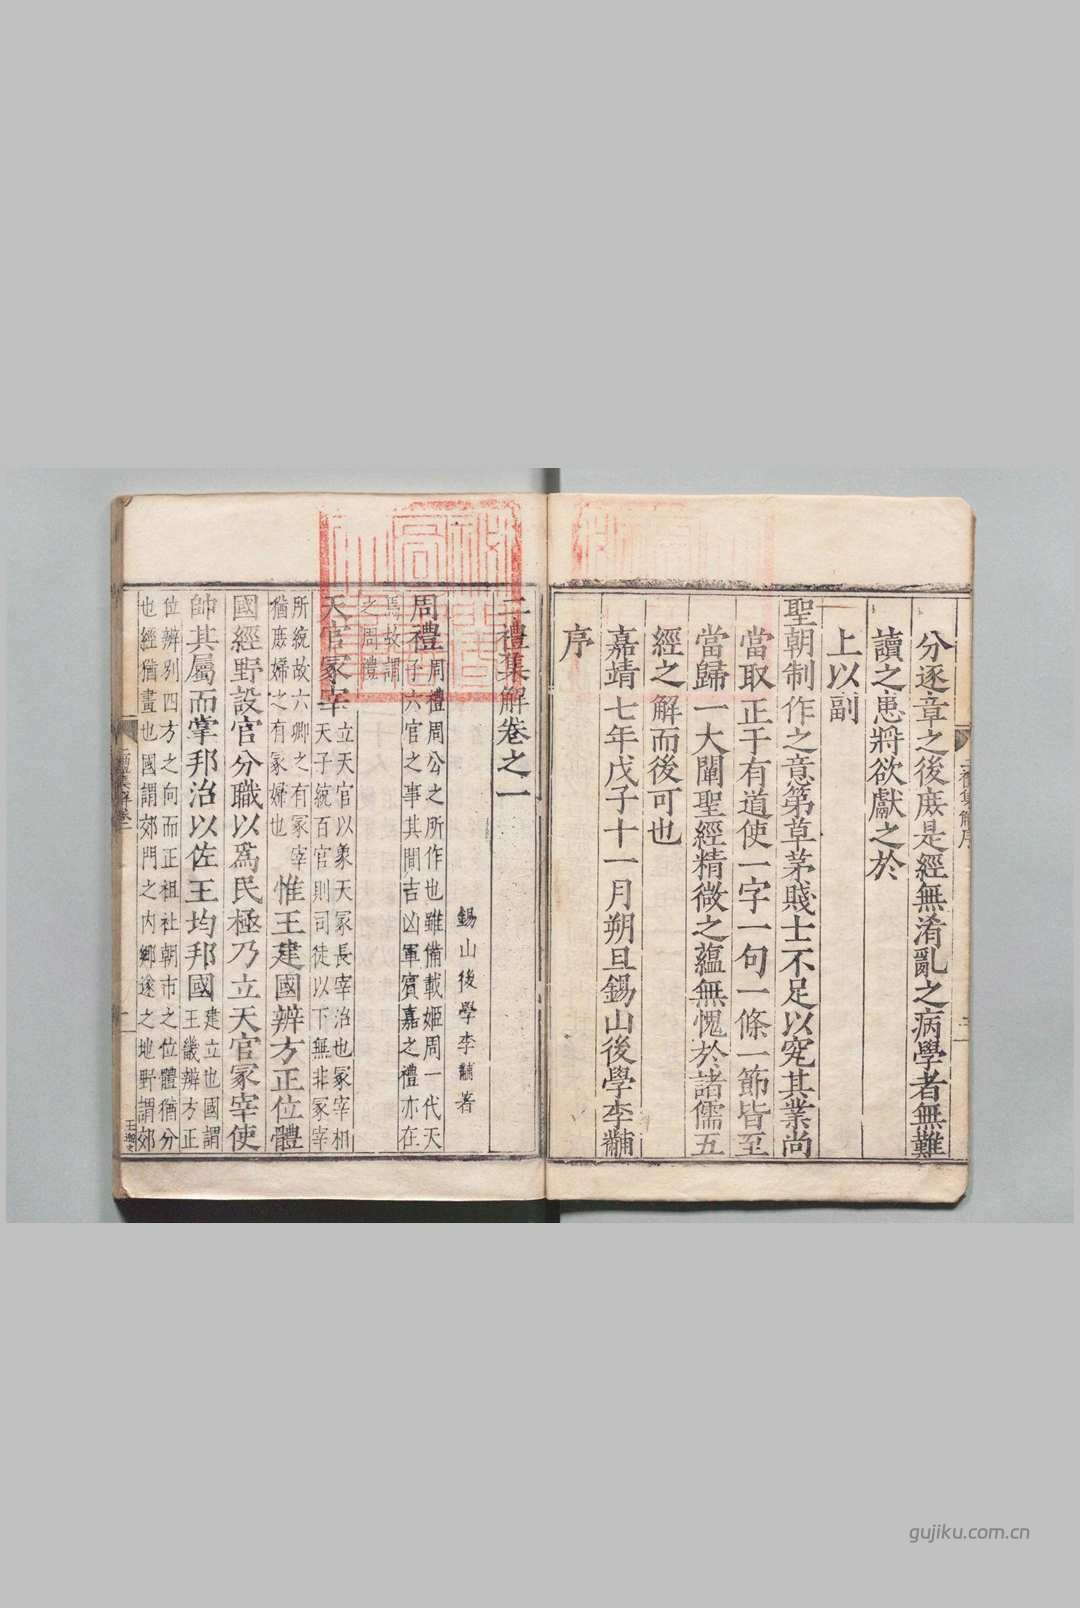 分逐章之後庻是經無淆亂之病學者無難
讀之患將欲獻之於
上以副
聖朝制作之意第草茅賤士不足以究其業尚
當取正于有道使一字一句一條一節皆至
當歸一大闡聖經精微之蘊無愧於諸儒五
經之解而後可也
嘉靖七年戊子十一月朔旦錫山後學李黼
序
二禮集解卷之一
錫山後學李黼著
周禮
周禮周公之所作也雖備載姬周一代天
子六官之事其間吉凶軍賓嘉之禮亦在
焉故謂
之周禮
天官冢宰
立天官以象天冢長宰治也冢宰相
天子統百官則司徒以下無非冢宰
所統故六卿之有冢宰
猶庻婦之有冢婦也
惟王建國辨方正位體
國經野設官分職以爲民極乃立天官冢宰使
帥其屬而掌邦治以佐王均邦國
建立也國謂
王畿辨方正
位辨別四方之向而正祖社朝市之位體猶分
也經猶畫也國謂郊門之内鄉遂之地野謂郊
二禮集解序
二禮集解卷一
gujiku.com.cn